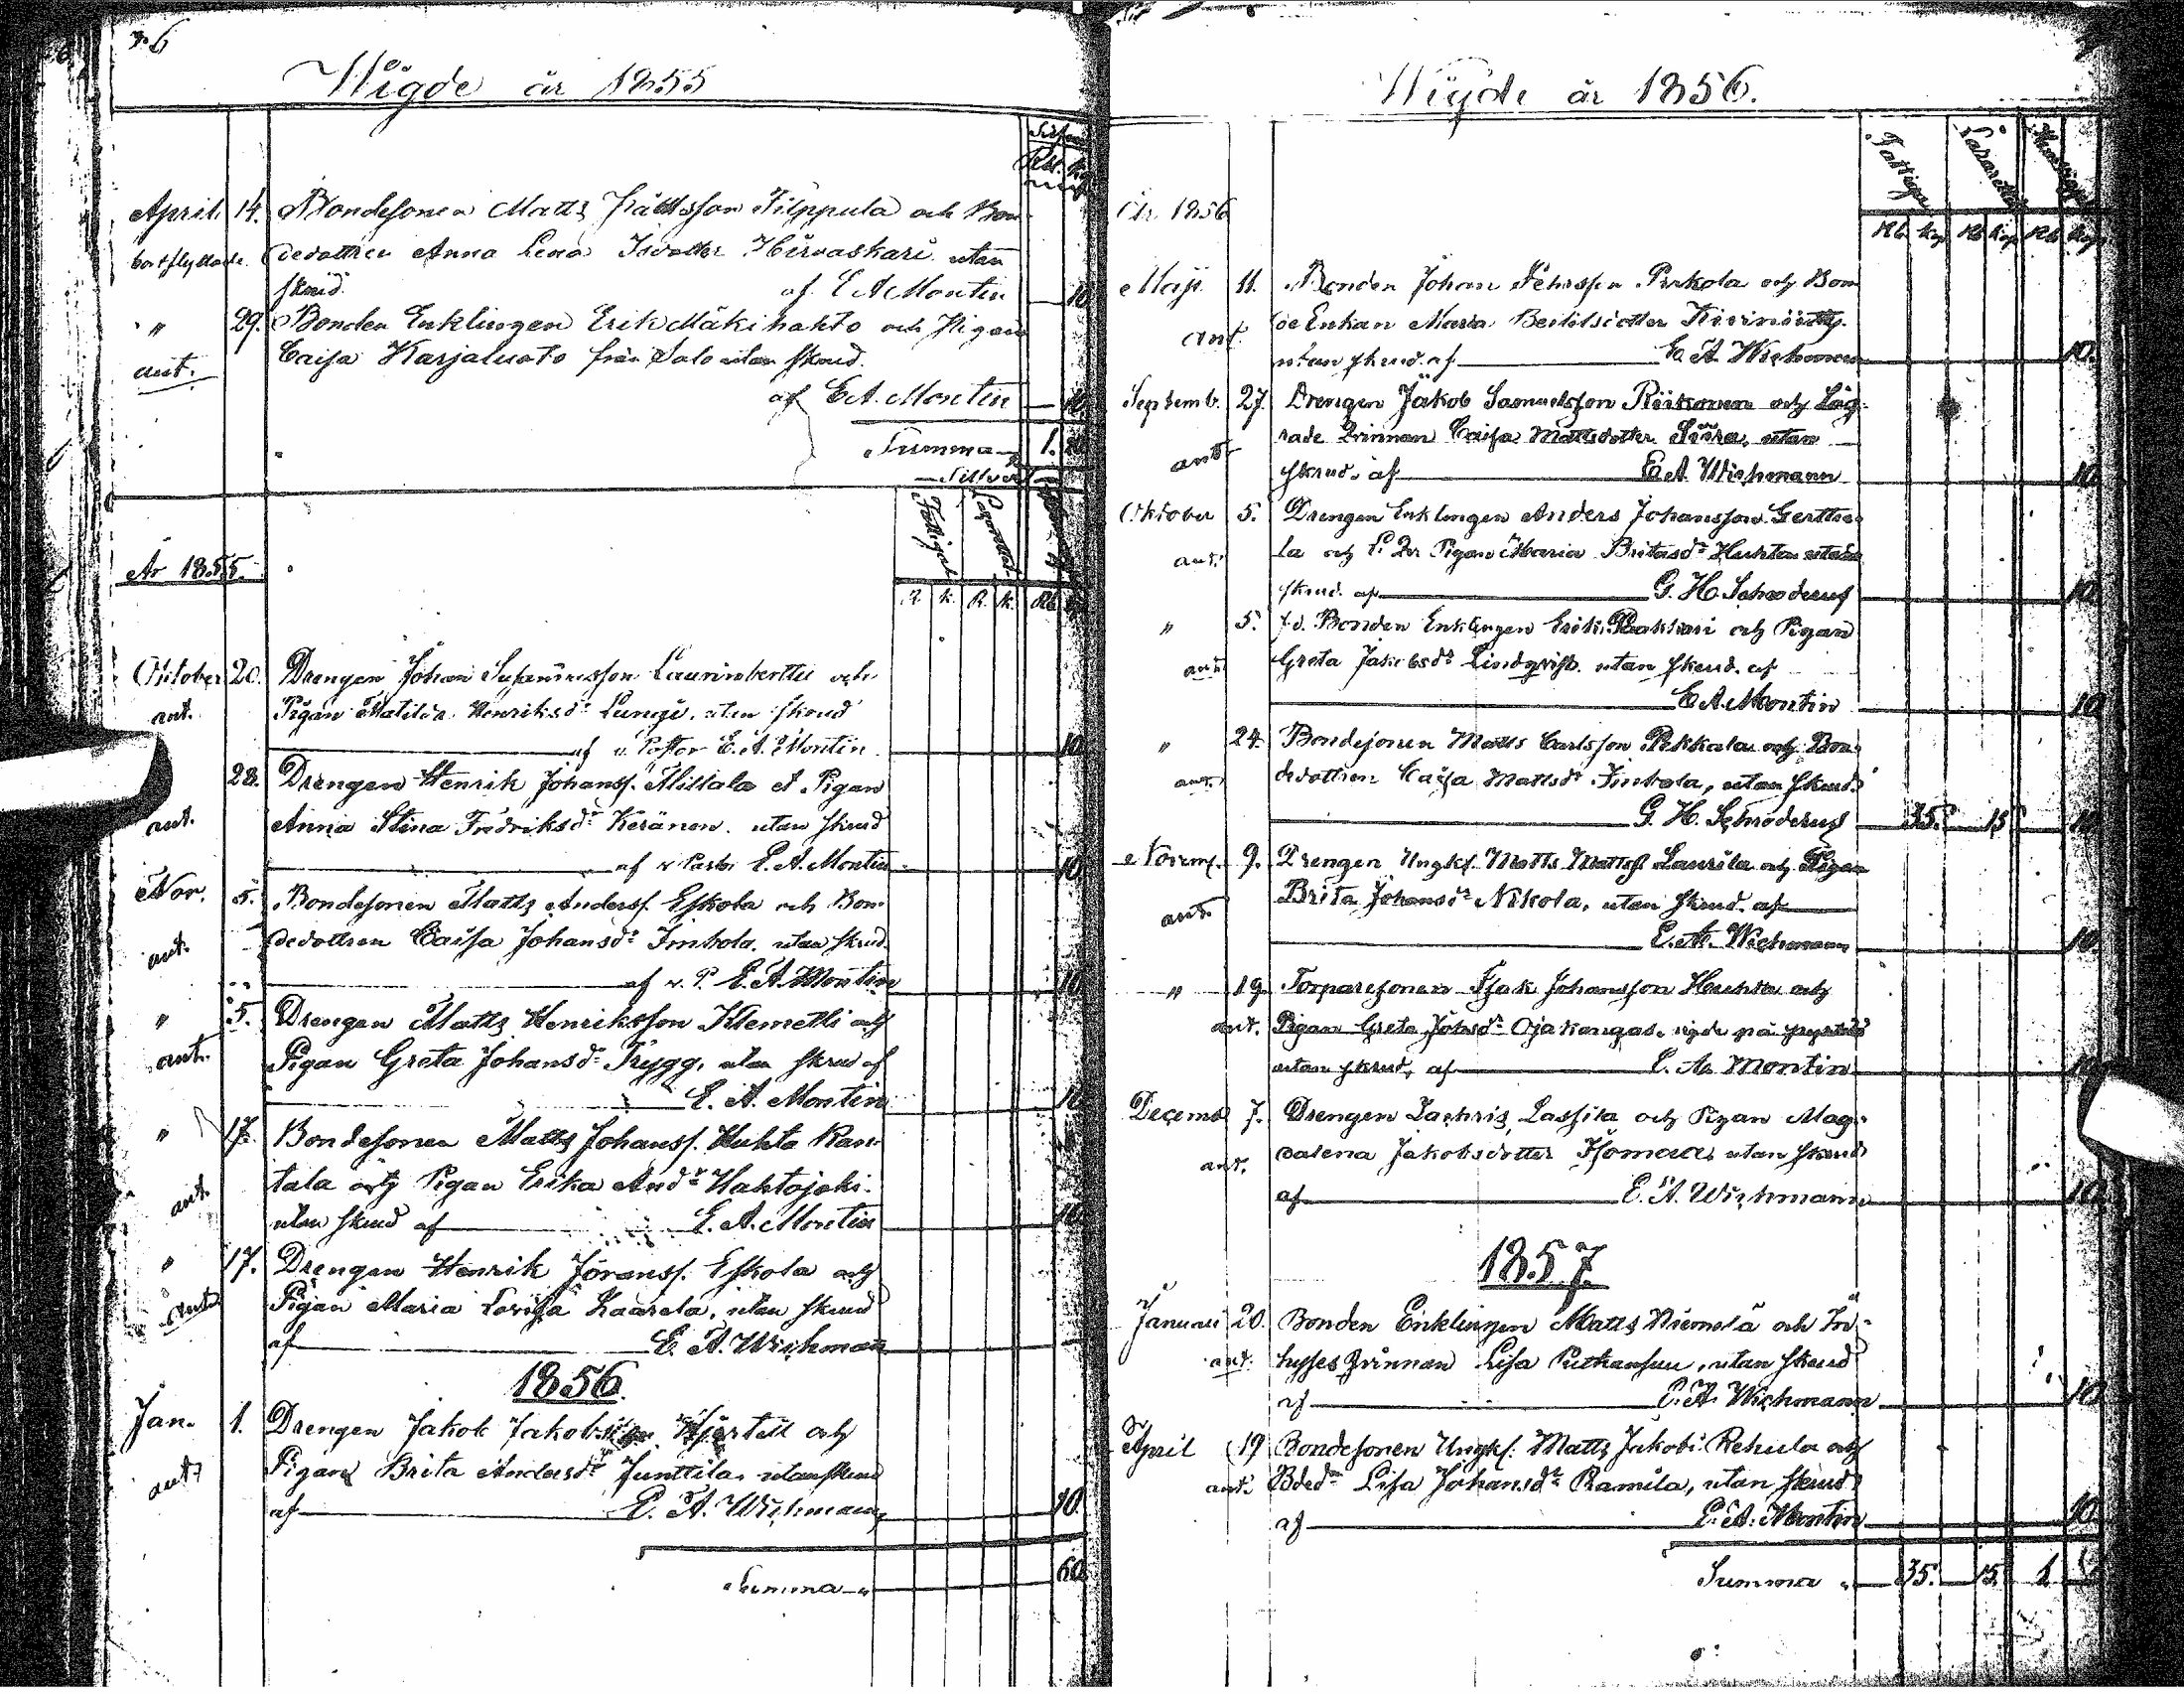 76
Wigde år 1855
Silfver
Rbl. Kop.
April 14. Bondesonen Matts Mattsson Filppula och Bon
bortflyttade. dedottren Anna Lena Isdotter Hirvaskari utan
skrud. af E A Montin 10
" 29. Bonden Enklingen Erik Mäkinahto och Pigan
ant. Caisa Karjaluoto från Salo utan skrud.
af E. A. Montin 10.
Summa 1.
Silfver
Fattigas Lazarettet
År 1855.
R. K. R. K. Rb
October 20. Drengen Johan Laurinberttu och
ant. Pigan Matilda Henriksdr Lungi, utan skrud
af v. Pastor E. A. Montin. 10
28. Drengen Henrik Johanss. Mittala et Pigan
ant. Anna Stina Fredriksdr Keränen. utan skrud
af v Pastor E. A. Montin 10
Nov. 5. Bondesonen Matts Anderss. Eskola och Bon-
ant. dedottren Caisa Johansdr Jmbola. utan skrud.
af v. P. E. A. Montin 10
" 5. Drengen Matts Henriksson Klemetti och
ant. Pigan Greta Johansdr Trygg, utan skrud af
E. A. Montin 10
" 17. Bondesonen Matts Johanss. Huhta Ran-
ant. tala och Pigan Erika Andr Hahtojoki.
utan skrud af E. A. Montin 10
" 17. Drengen Henrik Göranss. Eskola och
Pigan Maria Lovisa Kaarela, utan skrud
af E. A. Wichmann
1856.
Jan. 1. Drengen Jakob Jakobsson Hjertell och
ant. Pigan Brita Andersdr Junttila, utan skrud
af E. A. Wichmann 10.
Summa 60.
Wigde år 1856.
Fattigas Lazarettet
Rb. Kop Rb Kop Rb Kop
År 1856
Maji 11. Bonden Johan Pehrsson Perkola och Bon
ant. de Enkan Maria Bertilsdotter
utan skrud. af E. A. Wichmann 10.
Septemb. 27. Drengen Jakob Samuelsson Riikonen och Läg-
rade Qvinnan Caisa Mattsdotter utan
ant. skrud. af E. A. Wichmann 10
Oktober 5. Drengen Enklingen Anders Johansson Gertte-
ant. la och Pigan Maria Britasdr Huhta utan
skrud. af G. H. Schroderus 10
" 5. f.d. Bonden Enklingen Erik och Pigan
ant Greta Jakobsdr Lindqvist. utan skrud. af
E A. Montin 10
" 24. Bondesonen Matts Carlsson Pekkala och Bon-
ant. dedottren Caisa Mattsdr Jmbola, utan skrud.
G. H. Schroderus 35. 15 10
Novemb. 9. Drengen Ungkl. Matts Mattss. Laurila och Pigan
ant. Brita Johansdr Nikola, utan skrud. af
E. A. Wichmann 10
" 19. Torparesonen Isak Johansson Huhta och
ant. Pigan Greta Johsdr Ojakangas. vigde på
utan skrud, af E. A. Montin 10
Decemb 7. Drengen Zachris Lassila och Pigan Mag-
ant. dalena Jakobsdotter Isomaa, utan skrud
af E. A. Wichmann 10
1857.
Januari 20. Bonden Enklingen Matts Niemelä och In-
ant. hyses Qvinnan Lisa Putkansuu, utan skrud
af E. A. Wichmann 10
April 19 Bondesonen Ungkl. Matts Jakobs. Rehula och
ant. Bdedr Lisa Johansdr Ramila, utan skrud
af E. A. Montin 10
Summa 35. 15. 1.